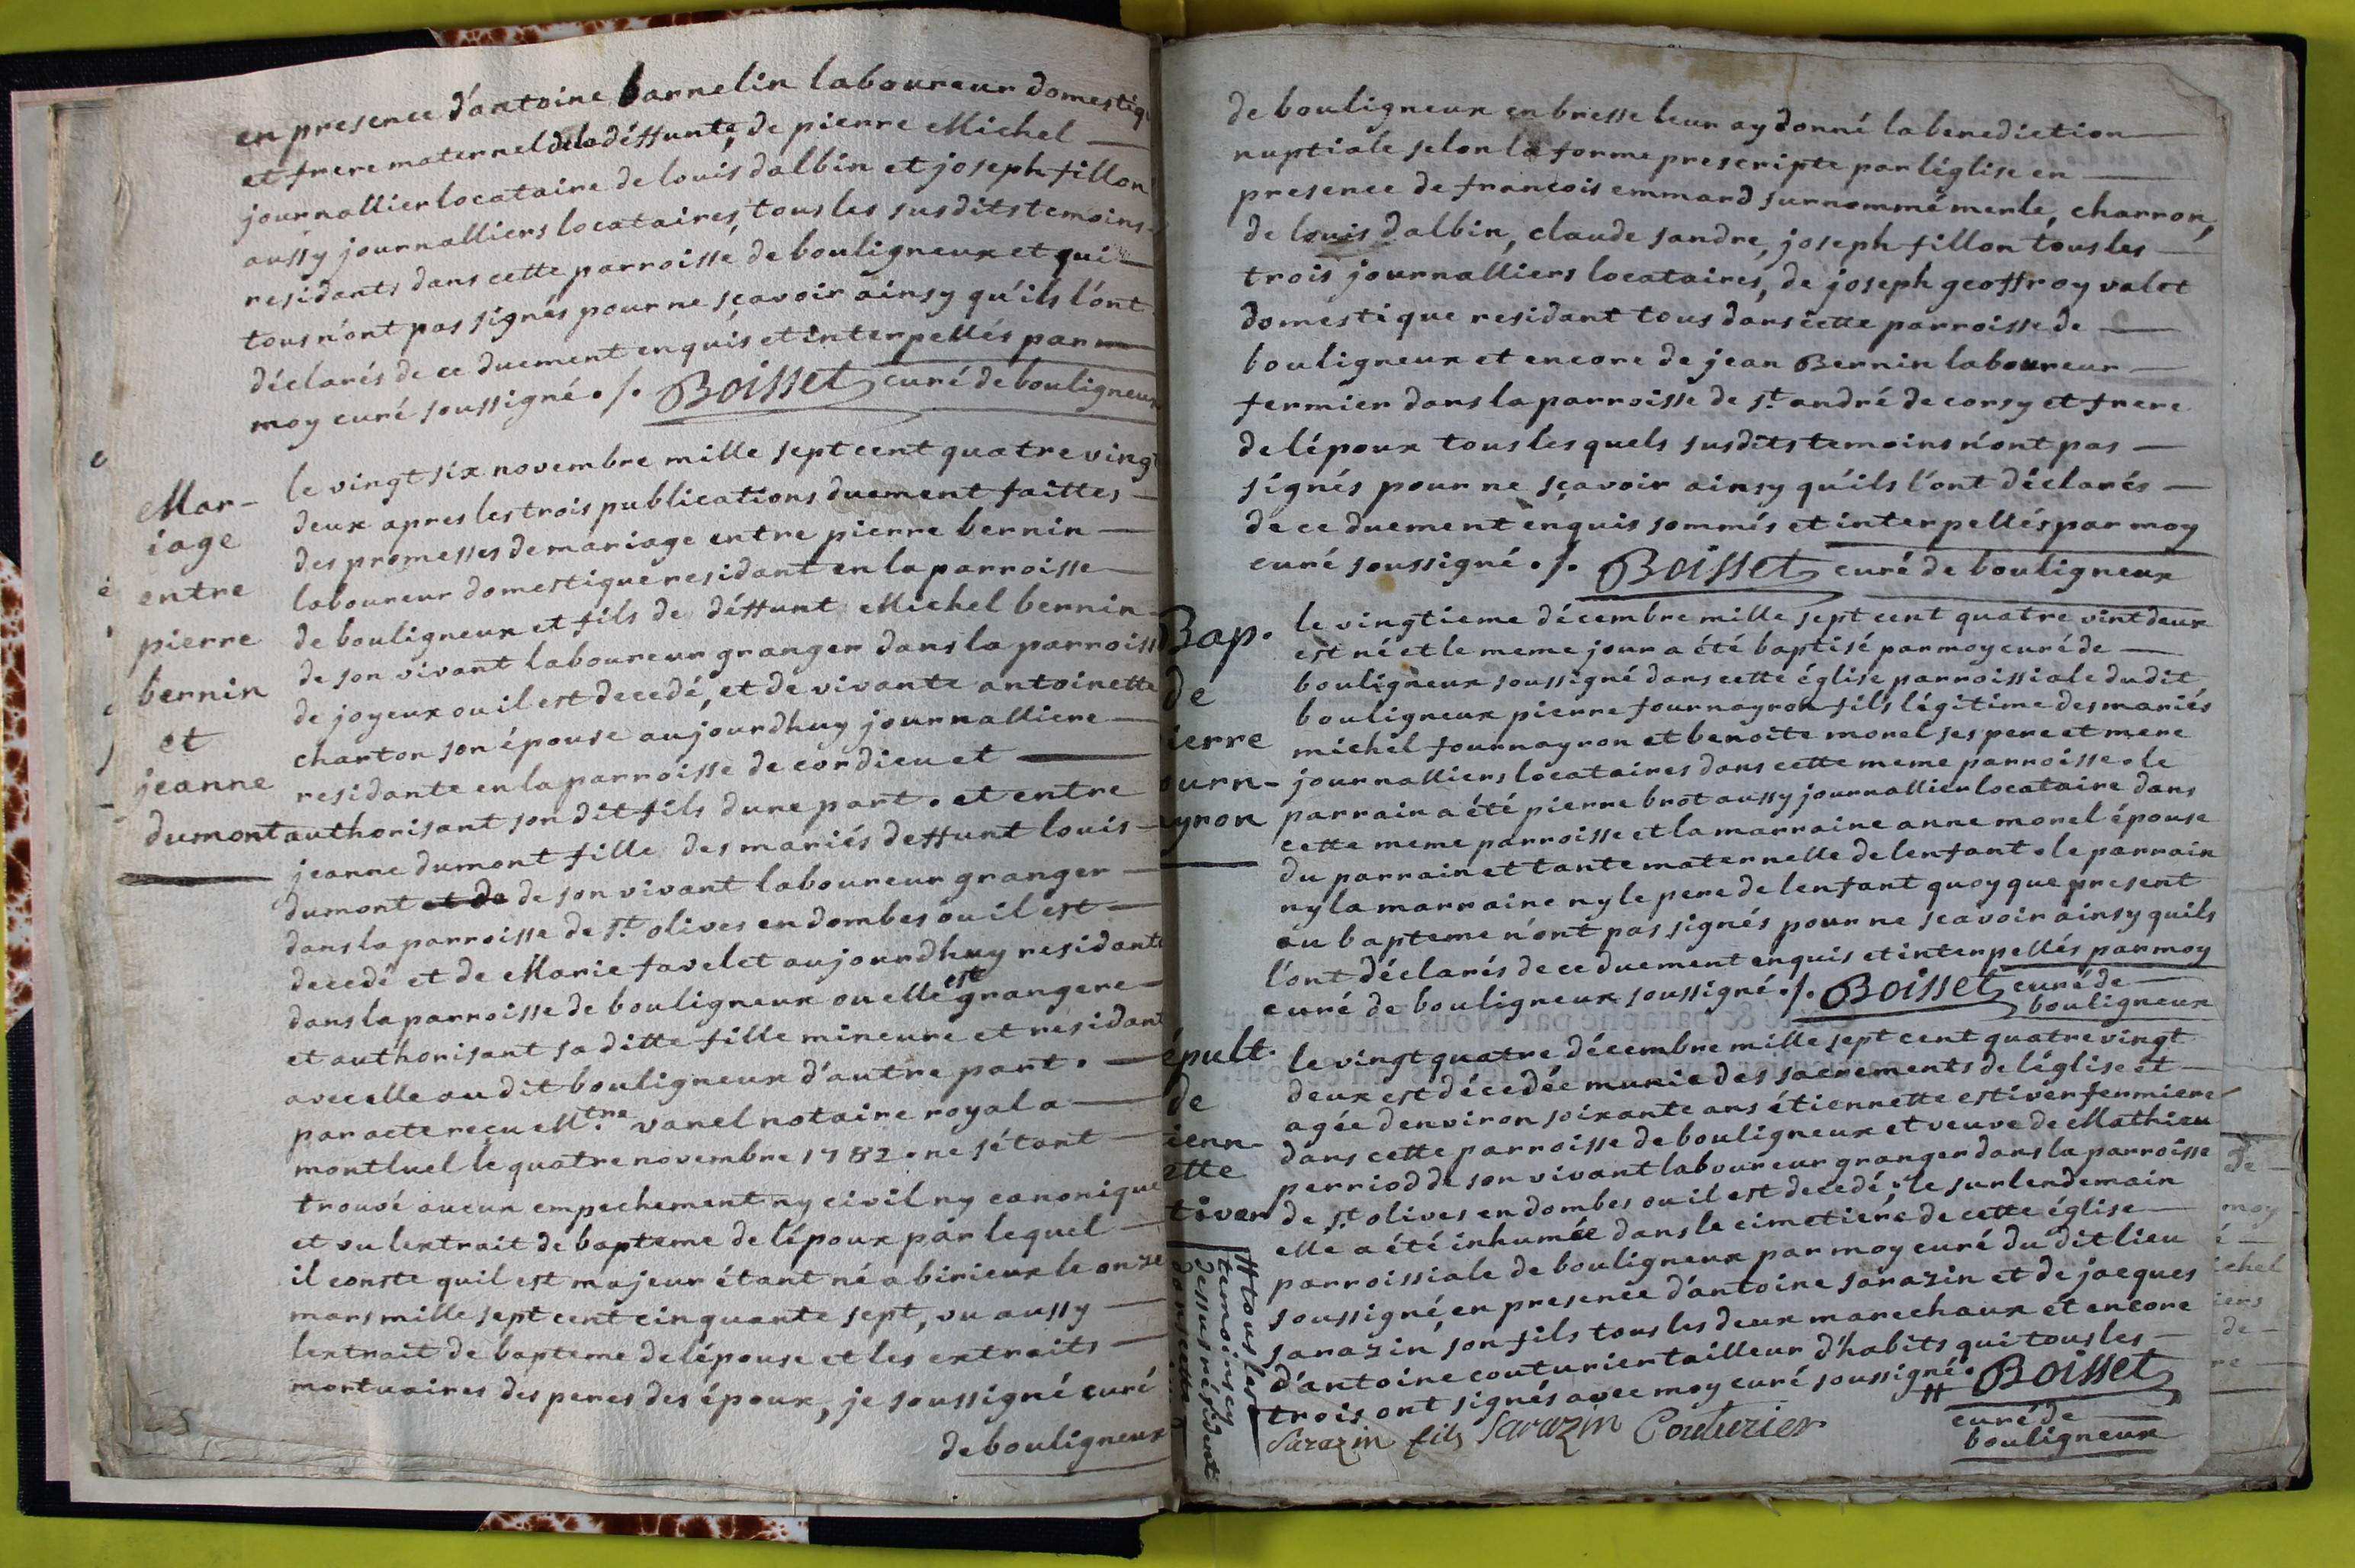 en presence d'antoine barnelin laboureur domestiq
et frere maternel de la déffunte, de pierre Michel
journallier locataire de louis dalbin et joseph fillon
aussy journalliers locataires, tous les susdits temoins
residants dans cette parroisse de bouligneux et qui
tous n'ont pas signés pour ne sçavoir ainsy qu'ils l'ont
déclarés de ce duement enquis et interpellés par
moy curé soussigné ./. Boisset curé de bouligneux
Mar-
iage
entre
pierre
bernin
et
jeanne
dumont
le vingt six novembre mille sept cent quatre vingt
deux apres les trois publications duement faittes
des promesses de mariage entre pierre bernin
laboureur domestique residant en la parroisse
de bouligneux et fils de déffunt Michel bernin
de son vivant laboureur granger dans la parroiss
de joyeux ou il est decedé, et de vivante antoinette
charton son épouse aujourdhuy journalliere
residante en la parroisse de cordieu et
authorisant son dit fils dune part. et entre
jeanne dumont fille des mariés deffunt louis
dumont et de de son vivant laboureur granger
dans la parroisse de st olives en dombes ou il est
decedé et de Marie favelet aujourdhuy residante
dans la parroisse de bouligneux ou elle est grangere
et authorisant sa ditte fille mineure et residant
avec elle au dit bouligneux d'autre part.
par acte recu Mtre vanel notaire royal a
montluel le quatre novembre 1782. ne s'étant
trouvé aucun empechement ny civil ny canonique
et vu lextrait de bapteme de l'époux par lequel
il conste quil est majeur étant né a birieux le onze
mars mille sept cent cinquante sept, vu aussy
lextrait de bapteme de lépouse et les extraits
mortuaires des peres des époux, je soussigné curé
de bouligneux
de bouligneux en bresse leur ay donné la benediction
nuptiale selon la forme prescripte par léglise en
presence de francois emmard surnommé merle, charron,
de louis dalbin, claude sandre, joseph fillon tous les
trois journalliers locataires, de joseph geoffroy valet
domestique residant tous dans cette parroisse de
bouligneux et encore de jean Bernin laboureur
fermier dans la parroisse de st andré de corsy et frere
de lépoux tous les quels susdits temoins n'ont pas
signés pour ne sçavoir ainsy qu'ils l'ont déclarés
de ce duement enquis sommés et interpellés par moy
curé soussigné ./. Boisset curé de bouligneux
Bap.
de
ierre
ourn-
yron
le vingtieme décembre mille sept cent quatre vint deux
est né et le meme jour a été baptisé par moy curé de
bouligneux soussigné dans cette église parroissiale dudit
bouligneux pierre fournayron fils légitime des mariés
michel fournayron et benoite morel ses pere et mere
journalliers locataires dans cette meme parroisse. le
parrain a été pierre brot aussy journallier locataire dans
cette meme parroisse et la marraine anne morel épouse
du parrain et tante maternelle de lenfant. le parrain
ny la marraine ny le pere de lenfant quoy que present
au bapteme n'ont pas signés pour ne scavoir ainsy quils
l'ont déclarés de ce duement enquis et interpellés par moy
curé de bouligneux soussigné ./. Boisset curé de
bouligneux
épult.
de
ienn-
ette
tiver
le vingt quatre décembre mille sept cent quatre vingt
deux est décedée munie des sacrements de léglise et
agée denviron soixante ans étiennette estiver fermiere
dans cette parroisse de bouligneux et veuve de Mathieu
perriod de son vivant laboureur granger dans la parroisse
de st olives en dombes ou il est decedé, le surlendemain
elle a été inhumée dans le cimetiere de cette église
parroissiale de bouligneux par moy curé du dit lieu
soussigné, en presence d'antoine sarazin et de jacques
sarazin son fils tous les deux marechaux et encore
d'antoine couturier tailleur d'habits qui tous les
trois ont signés avec moy curé soussigné. Boisset
curé de
bouligneux
Sarazin fils Sarazin Couturier
# tous les
temoins cy
dessus résident
dans cette
de
moy
é
ichel
iers
de
re